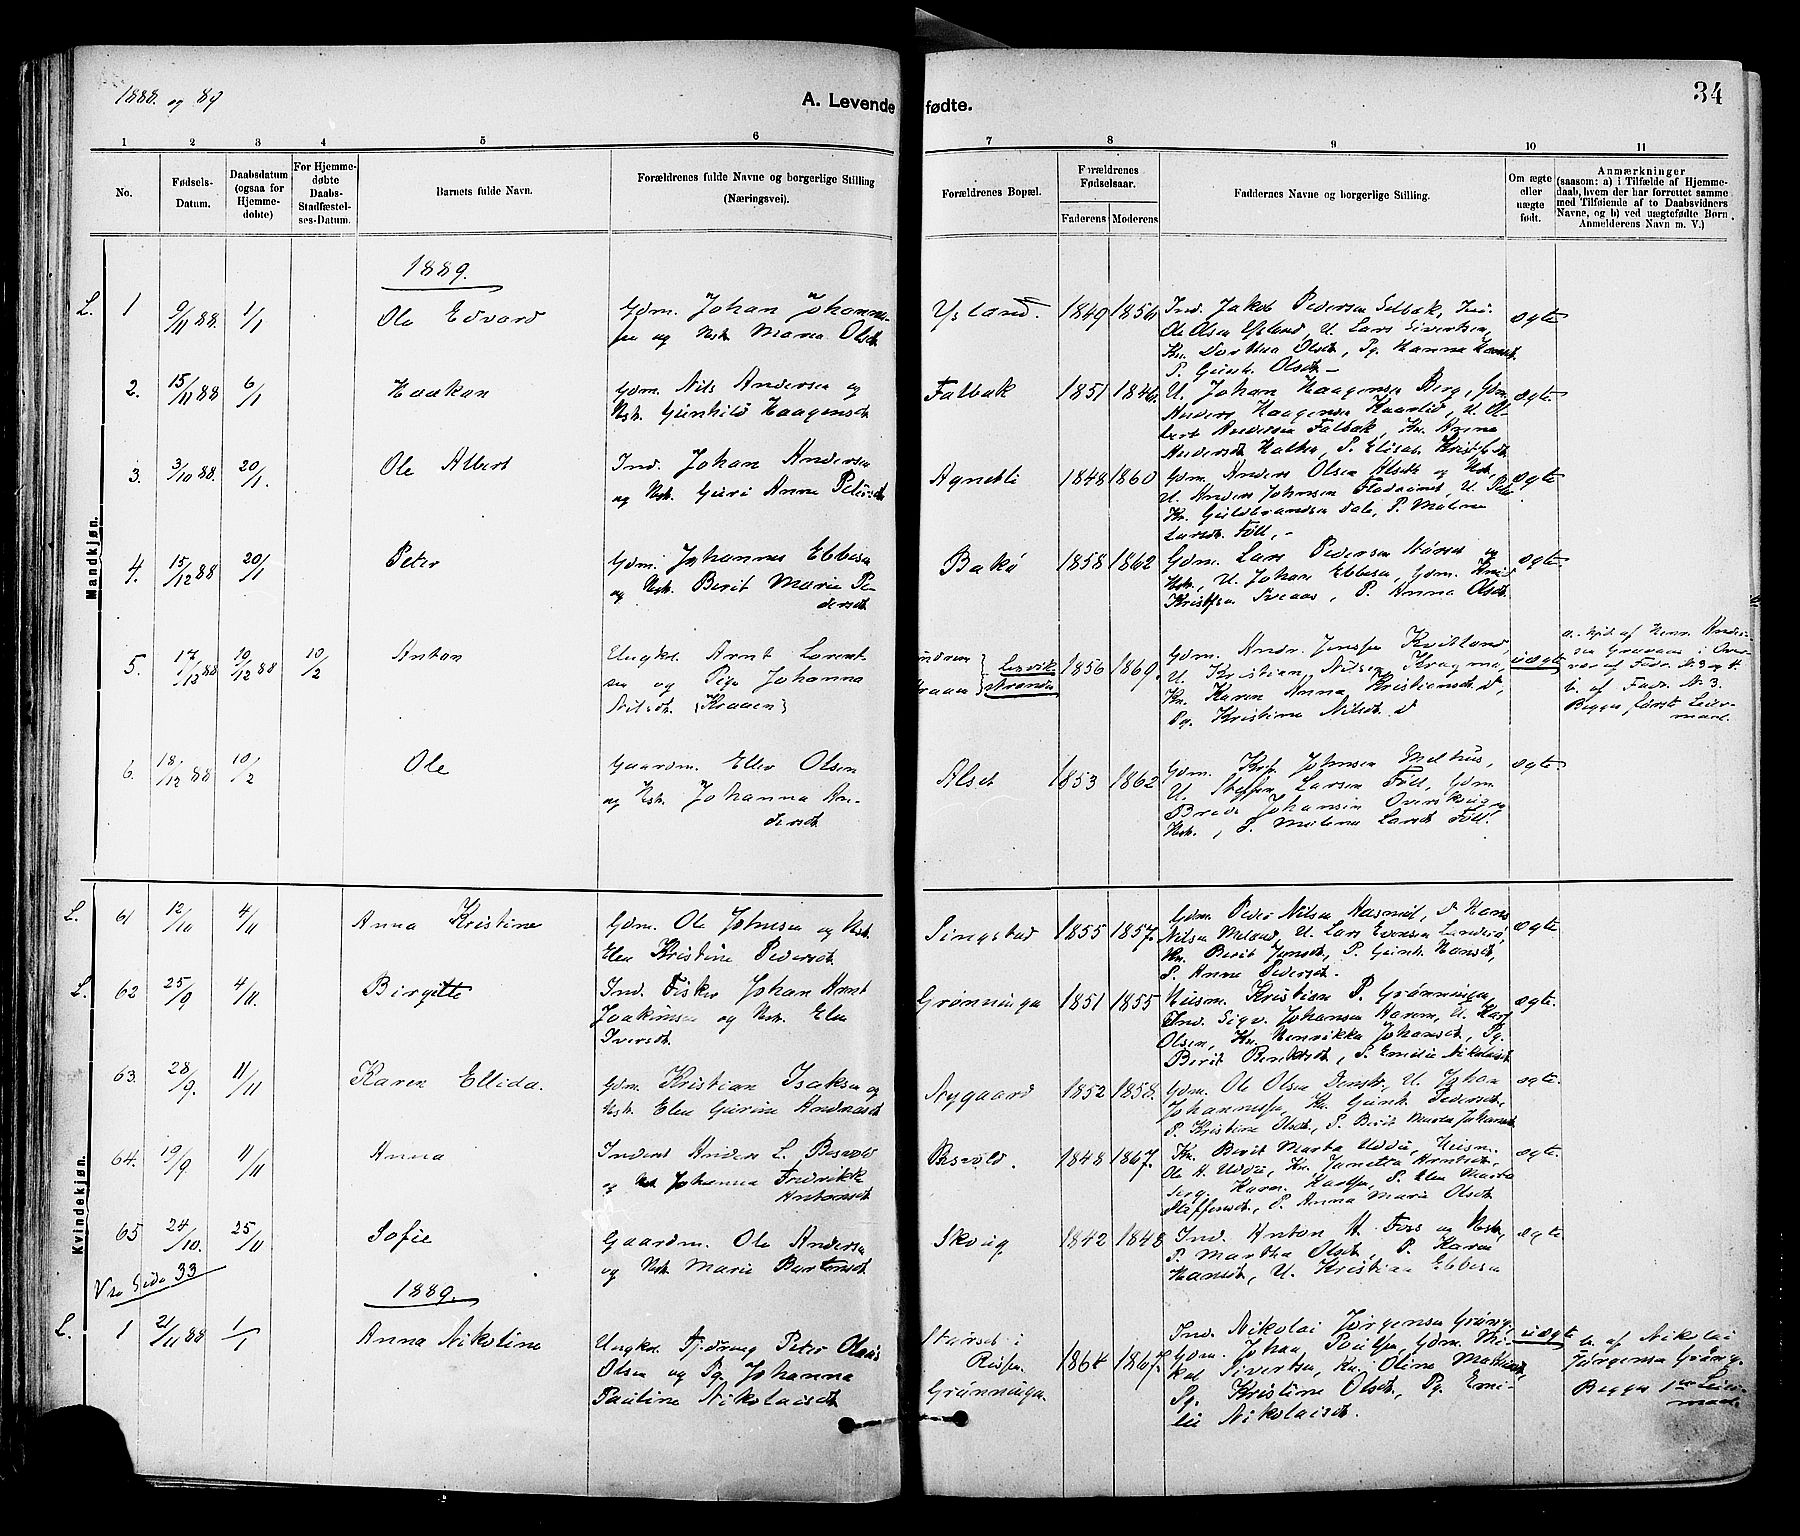 1888. og 89
A. Levende fødte.
34
1 2 3 4 5 6 7 8 9 10 11
No.
Fødsels-Datum.
Daabsdatum (ogsaa for Hjemme-døbte)
For Hjemme-døbte Daabs-Stadfæstel-ses-Datum.
Barnets fulde Navn.
Forældrenes fulde Navne og borgerlige Stilling (Næringsvei).
Forældrenes Bopæl.
Forældrenes Fødselsaar.
Faderens Moderens
Faddernes Navne og borgerlige Stilling.
Om ægte eller uægte født.
Anmærkninger
(saasom: a) i Tilfælde af Hjemme-
daab, hvem der har forrettet samme
med Tilføiende af to Daabsvidners
Navne, og b) ved uægtefødte Børn
Anmelderens Navn m. V.)
Mandkjøn.
1889.
L. 1 9/11 88 1/1 Ole Edvard Gdm. Johan Johannes-
sen og Hstr. Maria Olsdt.
Ysland. 1849 1856 Ind. Jakob Pedersen Selbæk,
Ole Olsen Ysland, U. Lars Sivertsen,
Kn. Dorthea Olsdt, Pg. Hanna Hansdt.
P. Gunh. Olsdt. ægte
2. 15/11 88 6/1 Haakan Gdm. Nils Andersen og
Hstr. Gunhild Haagensdt.
Falbak 1851 1846. U. Johan Haagensen Berg, Gdm.
Anders Haagensen Haarlid, U. Ol-
bert Andersen Falbak, Kn. Anna
Andersdt. P. Elisab. Kristofdt. ægte.
3. 3/10 88. 20/1. Ole Albert Ind. Johan Andersen
og Hstr. Guri Anne Petersdt.
Agnetli 1848 1860 Gdm. Anders Olsen Alset og Hstr.
U. Anders Johnsen U. Peter
Kn. Guldbrandsen Dale, P. Malene
Larsdt. Föll, ægte
4. 15/12 88 20/1 Peter Gdm. Johannes Ebbesen
og Hstr. Berit Marie Pe-
dersdt.
Bakö 1858 1862 Gdm. Lars Pedersen Störset og
Hstr., U. Johan Ebbesen, Gdm.
Kristofsen P. Anna Olsdt. ægte.
5. 17/12 88 10/12 88 10/2 Anton Ungkl. Arnt Lorent-
sen og Pige Johanna
Nilsdt. (Kraaen)
Lexvik-
stranden 1856 1869. Gdm. Andr. Jenssen Kvitland,
U. Kristian Nilsen Kragmo,
Kn. Karen Anna Kristiansdt. d,
Pg. Kristine Nilsdt. d uægte
b. af Fadr. N. 3.
Begges første Leier-
maal.
6. 18/12 88 10/2 Ole Gaardm. Eller Olsen
og Hstr. Johanna An-
dersdt.
Alset 1853 1862 Gdm. Johnsen Melhus,
U. Steffen Larsen Föll, Gdm.
Johansen Overskaug
Hstr., P. Malena Larsdt. Föll. ægte.
Kvindekjøn.
L. 61 12/10 4/11 Anna Kristine Gdm. Ole Johnsen og Hstr.
Elen Kristine Pedersdt.
Singstad 1855 1857. Gdm. Peder Nilsen Hans
Nilsen U. Lars Evensen
Kn. Berit Jensdt, P. Gunh. Hansdt,
P. Anne Pedersdt. ægte.
L. 62 25/9 4/11. Birgitte Ind. Fisker Johan Arnt
Joakimsen og Hstr. Elen
Iversdt.
Grønninga 1851 1855 Husm. Kristian P. Grønninga,
Ind. Sigv. Johansen Harem, U. Karl
Olsen, Kn. Henrikka Johansdt, Pg.
Berit Bendiksdt, P. Emilie Nikolaisdt. ægte.
63. 28/9. 11/11 Karen Ellida. Gdm. Kristian Isaksen og
Hstr. Elen Gurine Andreasdt.
Nygaard 1852 1858. Gdm. Ole Olsen U. Johan
Johannessen, Kn. Gunh. Pedersdt,
P. Kristine Olsdt, P. Berit Marta Johansdt. ægte.
64. 19/9 11/11 Anna Inderst Anders L. Besvold
og Hstr. Johanna Fredrikke
Antonsdt.
Besvold. 1848 1867. Kn. Berit Marta Uddu, Husm.
Ole H. Uddu, Kn. Janetta Arntsdt,
P. Elen Marta
Steffensdt., P. Anna Marie Olsdt. ægte.
65 24/10. 25/11 Sofie Gaardm. Ole Andersen
og Hstr. Marie Bertensdt.
Skoug 1842 1848 Ind. Anton H. Foss og Hstr.,
P. Martha Olsdt, P. Karen
Hansdt, U. Kristian Ebbesen ægte
Vide Side 33
1889.
L. 1 21/11 88 1/1 Anna Nikoline Ungkl. Peter Olaus
Olsen og Pg. Johanna
Pauline Nikolaisdt.
Størset i
Rissen
Grønninga. 1864 1867. Ind. Nikolai Jørgensen Grøng.,
Gdm. Johan Poulsen, Gdm. Mi-
kal Sivertsen, Kn. Oline
Pg. Kristine Olsdt, Pg. Emi-
lie Nikolaisdt. uægte
b. af Nikolai
Jørgensen Grøng.
Begges 1ste Leier-
maal.